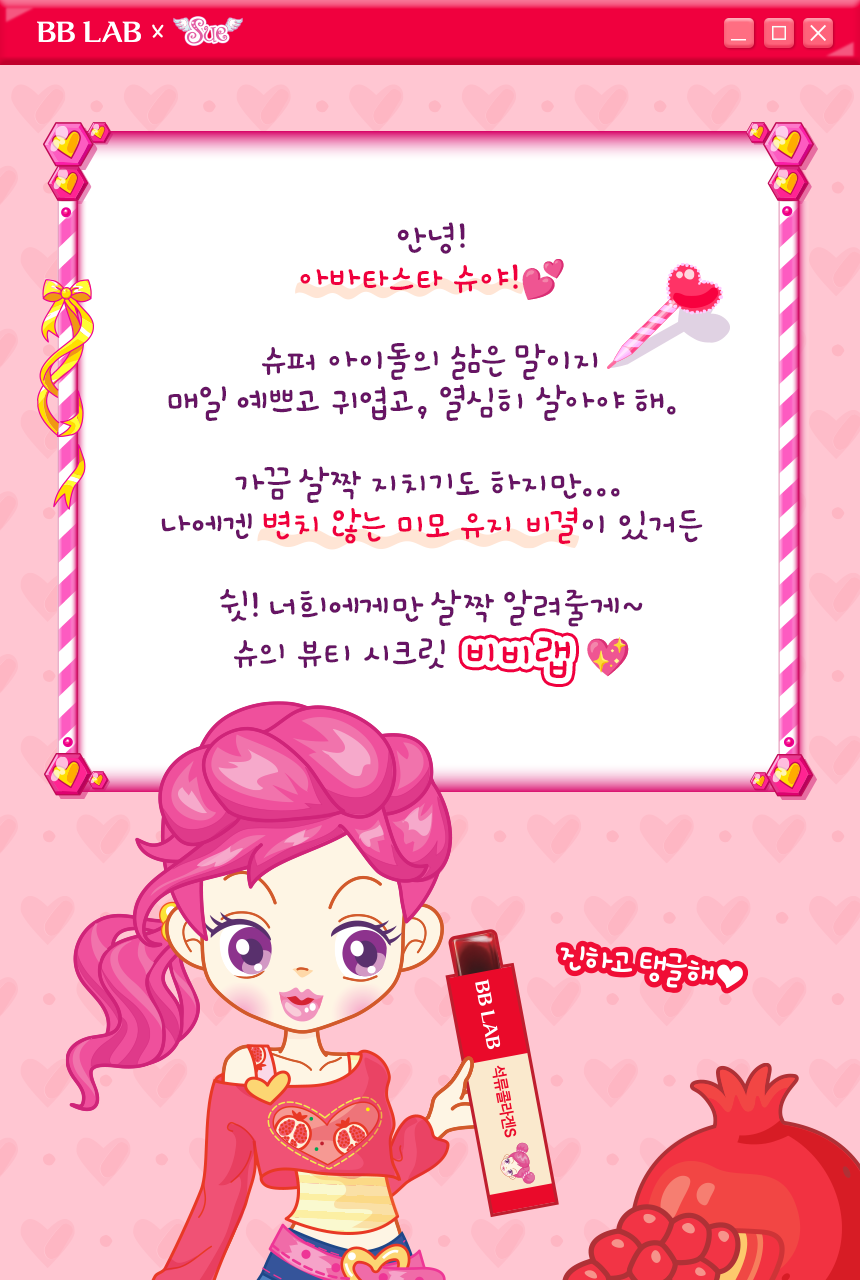 BB LAB × Sue
안녕!
아바타스타 슈야!
슈퍼 아이돌의 삶은 말이지
매일 예쁘고 귀엽고, 열심히 살아야 해.
가끔 살짝 지치기도 하지만...
나에겐 변치 않는 미모 유지 비결이 있거든
쉿! 너희에게만 살짝 알려줄게~
슈의 뷰티 시크릿 비비랩
진하고 탱글해
BB LAB
석류콜라겐S